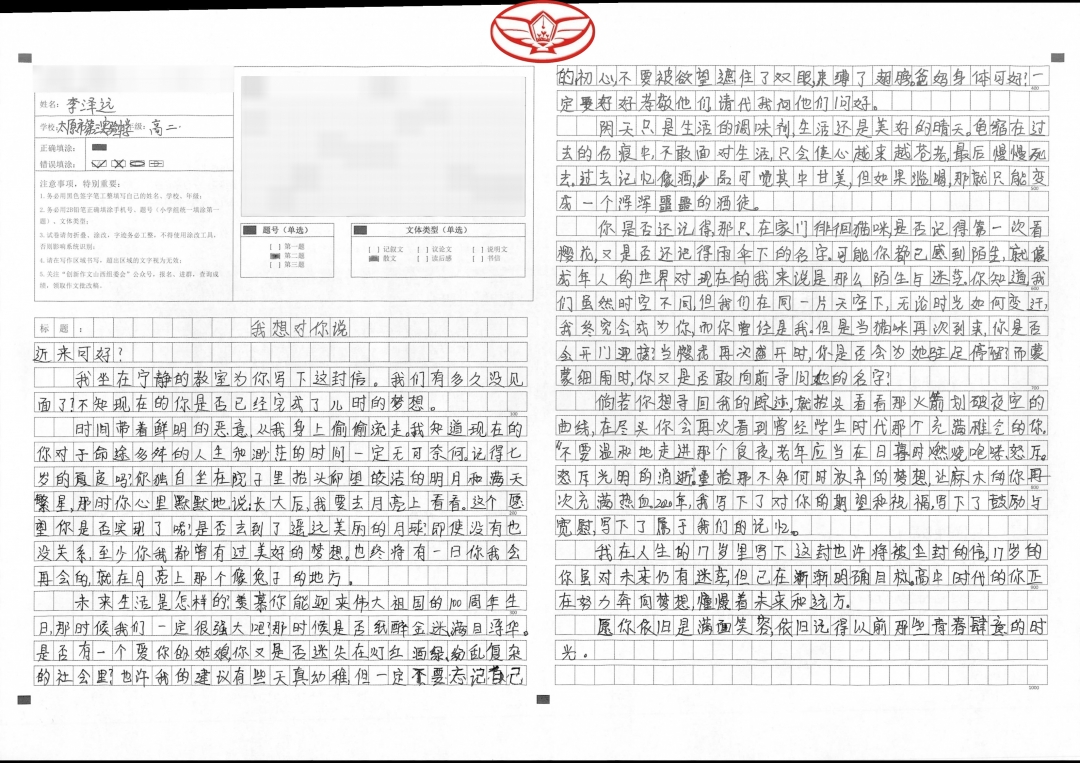 姓名：李泽远
学校：太原市第 高二
正确填涂：
错误填涂：
注意事项，特别重要：
1.务必用黑色签字笔工整填写自己的姓名、学校、年级；
2.务必用2B铅笔正确填涂手机号、题号（小学组统一填涂第一
题）、文体类型；
3.试卷请勿折叠、涂改，字迹务必工整，不得使用涂改工具，
否则影响系统识别；
4.请在写作区域书写，超出区域的文字视为无效；
5.关注“创新作文山西组委会”公众号，报名、进群、查询成
绩，领取作文批改稿。
题号（单选）
[ ] 第一题
第二题
[ ] 第三题
文体类型（单选）
[ ] 记叙文 [ ] 议论文 [ ] 说明文
散文 [ ] 读后感 [ ] 书信
标 题： 我想对你说
近来可好？
我坐在宁静的教室为你写下这封信。我们有多久没见
面了？不知现在的你是否已经完成了儿时的梦想。
100
时间带着鲜明的恶意，从我身上偷偷流走。我知道现在的
你对于命途多舛的人生和渺茫的时间一定无可奈何。记得七
岁的夏夜吗？你独自坐在院子里抬头仰望皎洁的明月和满天
繁星，那时你心里默默地说：长大后，我要去月亮上看看。这个愿
200
望你是否实现了呢？是否去到了遥远美丽的月球？即使没有也
没关系，至少你我都曾有过美好的梦想。也终将有一日你我会
再会的，就在月亮上那个像兔子的地方。
未来生活是怎样的？羡慕你能迎来伟大祖国的100周年生
300
日，那时候我们一定很强大吧？那时候是否纸醉金迷满目浮华。
是否有一个爱你的姑娘，你又是否迷失在灯红酒绿，纷乱复杂
的社会里？也许我的建议有些天真幼稚但一定不要忘记自己
的初心不要被欲望遮住了双眼，束缚了翅膀。爸妈身体可好？一
400
定要好好孝敬他们，请代我向他们问好。
阴天只是生活的调味剂，生活还是美好的晴天。龟缩在过
去的伤痕中，不敢面对生活，只会使心越来越苍老，最后慢慢死
去。过去记忆像酒，少品可觉其中甘美，但如果滥喝，那就只能变
500
成一个浑浑噩噩的酒徒。
你是否还记得，那只在家门徘徊猫咪，是否记得第一次看
樱花，又是否还记得雨伞下的名字。可能你都已感到陌生，就像
成年人的世界对现在的我来说是那么陌生与迷茫。你知道，我
600
们虽然时空不同，但我们在同一片天空下，无论时光如何变迁，
我终究会成为你，而你曾经是我，但是当猫咪再次到来，你是否
会开门迎接？当樱花再次盛开时，你是否会为她驻足停留？而蒙
蒙细雨时，你又是否敢向前寻问她的名字？
700
倘若你想寻回我的踪迹，就抬头看看那火箭划破夜空的
曲线，在尽头你会再次看到曾经学生时代那个充满雄念的你。
“不要温和地走进那个良夜，老年应当在日暮时燃烧咆哮，怒斥，
怒斥光明的消逝”重拾那不知何时放弃的梦想，让麻木的你再
800
次充满热血。20年，我写下了对你的期望和祝福，写下了鼓励与
宽慰，写下了属于我们的记忆。
我在人生的17岁里写下这封也许将被尘封的信，17岁的
你虽对未来仍有迷茫，但已在渐渐明确目标。高中时代的你正
900
在努力奔向梦想，憧憬着未来和远方。
愿你依旧是满面笑容，依旧记得以前那些青春肆意的时
光。
1000